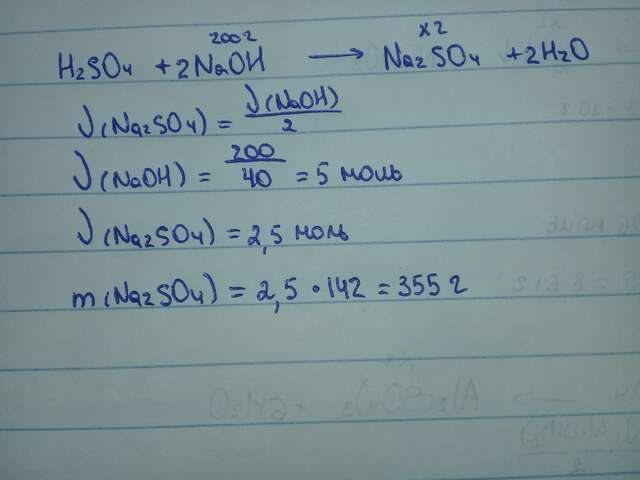 200г x г
H₂SO₄ + 2NaOH ⟶ Na₂SO₄ + 2H₂O
ν(Na₂SO₄) = ν(NaOH)/2
ν(NaOH) = 200/40 = 5 моль
ν(Na₂SO₄) = 2,5 моль
m(Na₂SO₄) = 2,5 • 142 = 355 г